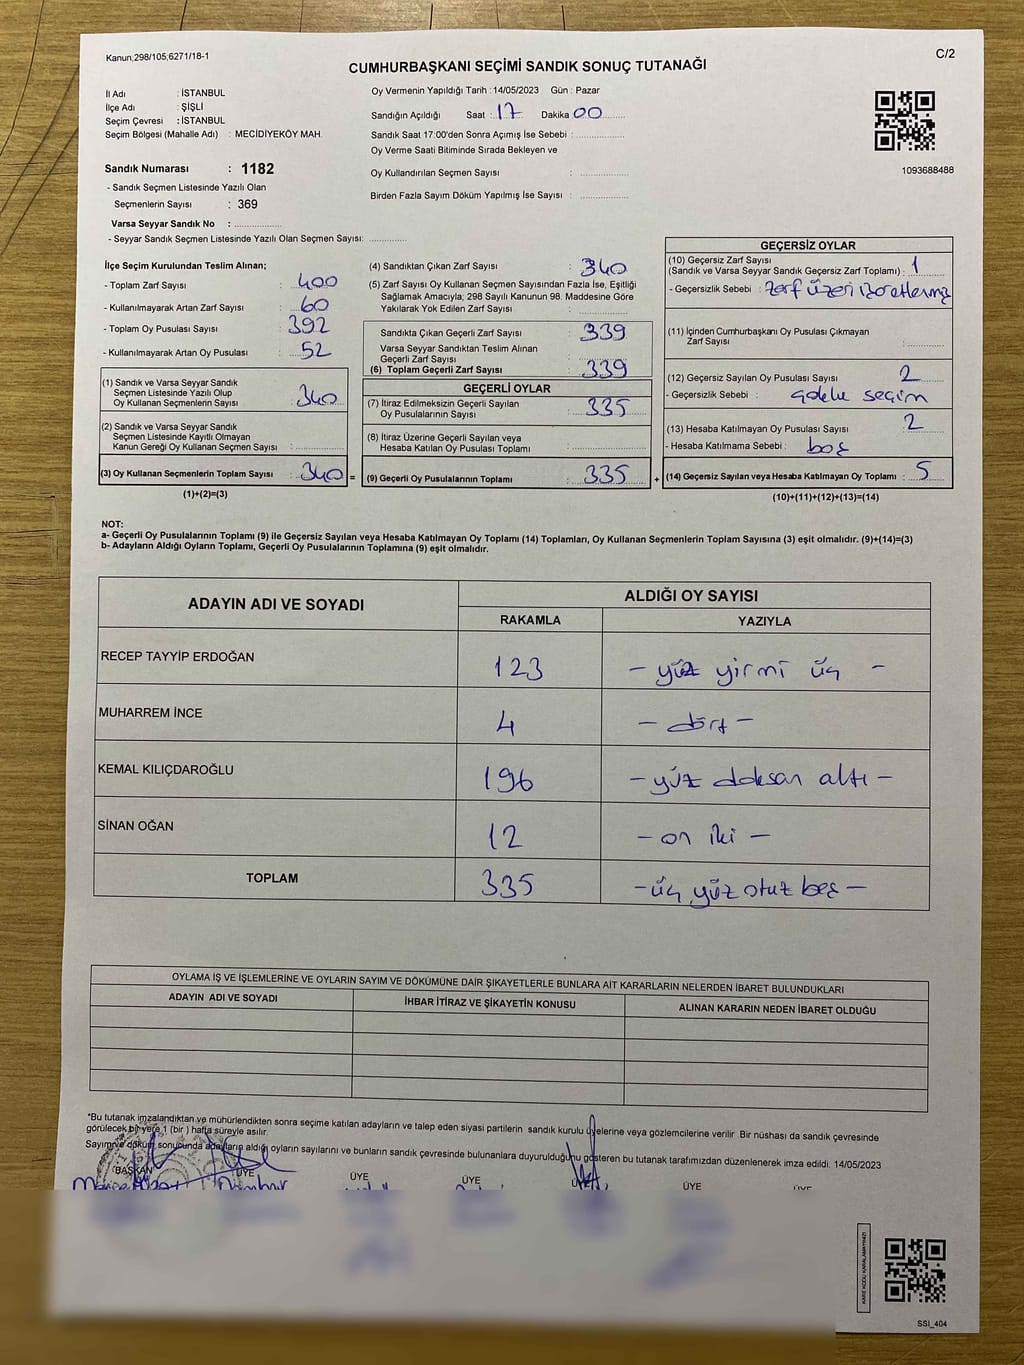 Kanun;298/105;6271/18-1
C/2
CUMHURBAŞKANI SEÇİMİ SANDIK SONUÇ TUTANAĞI
İl Adı : İSTANBUL
İlçe Adı : ŞİŞLİ
Seçim Çevresi : İSTANBUL
Seçim Bölgesi (Mahalle Adı) : MECİDİYEKÖY MAH.
Sandık Numarası : 1182
- Sandık Seçmen Listesinde Yazılı Olan
Seçmenlerin Sayısı : 369
Varsa Seyyar Sandık No : ...............
- Seyyar Sandık Seçmen Listesinde Yazılı Olan Seçmen Sayısı: ............
Oy Vermenin Yapıldığı Tarih : 14/05/2023 Gün : Pazar
Sandığın Açıldığı Saat : 17 Dakika 00
Sandık Saat 17:00'den Sonra Açımış İse Sebebi : ...............
Oy Verme Saati Bitiminde Sırada Bekleyen ve
Oy Kullandırılan Seçmen Sayısı : ...............
Birden Fazla Sayım Döküm Yapılmış İse Sayısı : ...............
1093688488
İlçe Seçim Kurulundan Teslim Alınan;
- Toplam Zarf Sayısı : 400
- Kullanılmayarak Artan Zarf Sayısı : 60
- Toplam Oy Pusulası Sayısı : 392
- Kullanılmayarak Artan Oy Pusulası : 52
(1) Sandık ve Varsa Seyyar Sandık
Seçmen Listesinde Yazılı Olup
Oy Kullanan Seçmenlerin Sayısı : 340
(2) Sandık ve Varsa Seyyar Sandık
Seçmen Listesinde Kayıtlı Olmayan
Kanun Gereği Oy Kullanan Seçmen Sayısı : ............
(3) Oy Kullanan Seçmenlerin Toplam Sayısı : 340 =
(1)+(2)=(3)
(4) Sandıktan Çıkan Zarf Sayısı : 340
(5) Zarf Sayısı Oy Kullanan Seçmen Sayısından Fazla İse, Eşitliği
Sağlamak Amacıyla; 298 Sayılı Kanunun 98. Maddesine Göre
Yakılarak Yok Edilen Zarf Sayısı : ...............
Sandıkta Çıkan Geçerli Zarf Sayısı : 339
Varsa Seyyar Sandıktan Teslim Alınan
Geçerli Zarf Sayısı : ...............
(6) Toplam Geçerli Zarf Sayısı : 339
GEÇERLİ OYLAR
(7) İtiraz Edilmeksizin Geçerli Sayılan
Oy Pusulalarının Sayısı : 335
(8) İtiraz Üzerine Geçerli Sayılan veya
Hesaba Katılan Oy Pusulası Toplamı : ...............
(9) Geçerli Oy Pusulalarının Toplamı : 335 +
GEÇERSİZ OYLAR
(10) Geçersiz Zarf Sayısı
(Sandık ve Varsa Seyyar Sandık Geçersiz Zarf Toplamı) : 1
- Geçersizlik Sebebi : zarf üzeri
(11) İçinden Cumhurbaşkanı Oy Pusulası Çıkmayan
Zarf Sayısı : ............
(12) Geçersiz Sayılan Oy Pusulası Sayısı : 2
- Geçersizlik Sebebi : çoklu seçim
(13) Hesaba Katılmayan Oy Pusulası Sayısı : 2
- Hesaba Katılmama Sebebi : boş
(14) Geçersiz Sayılan veya Hesaba Katılmayan Oy Toplamı : 5
(10)+(11)+(12)+(13)=(14)
NOT:
a- Geçerli Oy Pusulalarının Toplamı (9) ile Geçersiz Sayılan veya Hesaba Katılmayan Oy Toplamı (14) Toplamları, Oy Kullanan Seçmenlerin Toplam Sayısına (3) eşit olmalıdır. (9)+(14)=(3)
b- Adayların Aldığı Oyların Toplamı, Geçerli Oy Pusulalarının Toplamına (9) eşit olmalıdır.
ADAYIN ADI VE SOYADI ALDIĞI OY SAYISI
RAKAMLA YAZIYLA
RECEP TAYYİP ERDOĞAN 123 - yüz yirmi üç -
MUHARREM İNCE 4 - dört -
KEMAL KILIÇDAROĞLU 196 - yüz doksan altı -
SİNAN OĞAN 12 - on iki -
TOPLAM 335 - üç yüz otuz beş -
OYLAMA İŞ VE İŞLEMLERİNE VE OYLARIN SAYIM VE DÖKÜMÜNE DAİR ŞİKAYETLERLE BUNLARA AİT KARARLARIN NELERDEN İBARET BULUNDUKLARI
ADAYIN ADI VE SOYADI İHBAR İTİRAZ VE ŞİKAYETİN KONUSU ALINAN KARARIN NEDEN İBARET OLDUĞU
*Bu tutanak imzalandıktan ve mühürlendikten sonra seçime katılan adayların ve talep eden siyasi partilerin sandık kurulu üyelerine veya gözlemcilerine verilir. Bir nüshası da sandık çevresinde
görülecek bir yere 1 (bir ) hafta süreyle asılır.
Sayım ve döküm sonucunda adayların aldığı oyların sayılarını ve bunların sandık çevresinde bulunanlara duyurulduğunu gösteren bu tutanak tarafımızdan düzenlenerek imza edildi. 14/05/2023
BAŞKAN ÜYE ÜYE ÜYE ÜYE ÜYE ÜYE
KARE KODU KARALAMAYINIZ!
SSI_404